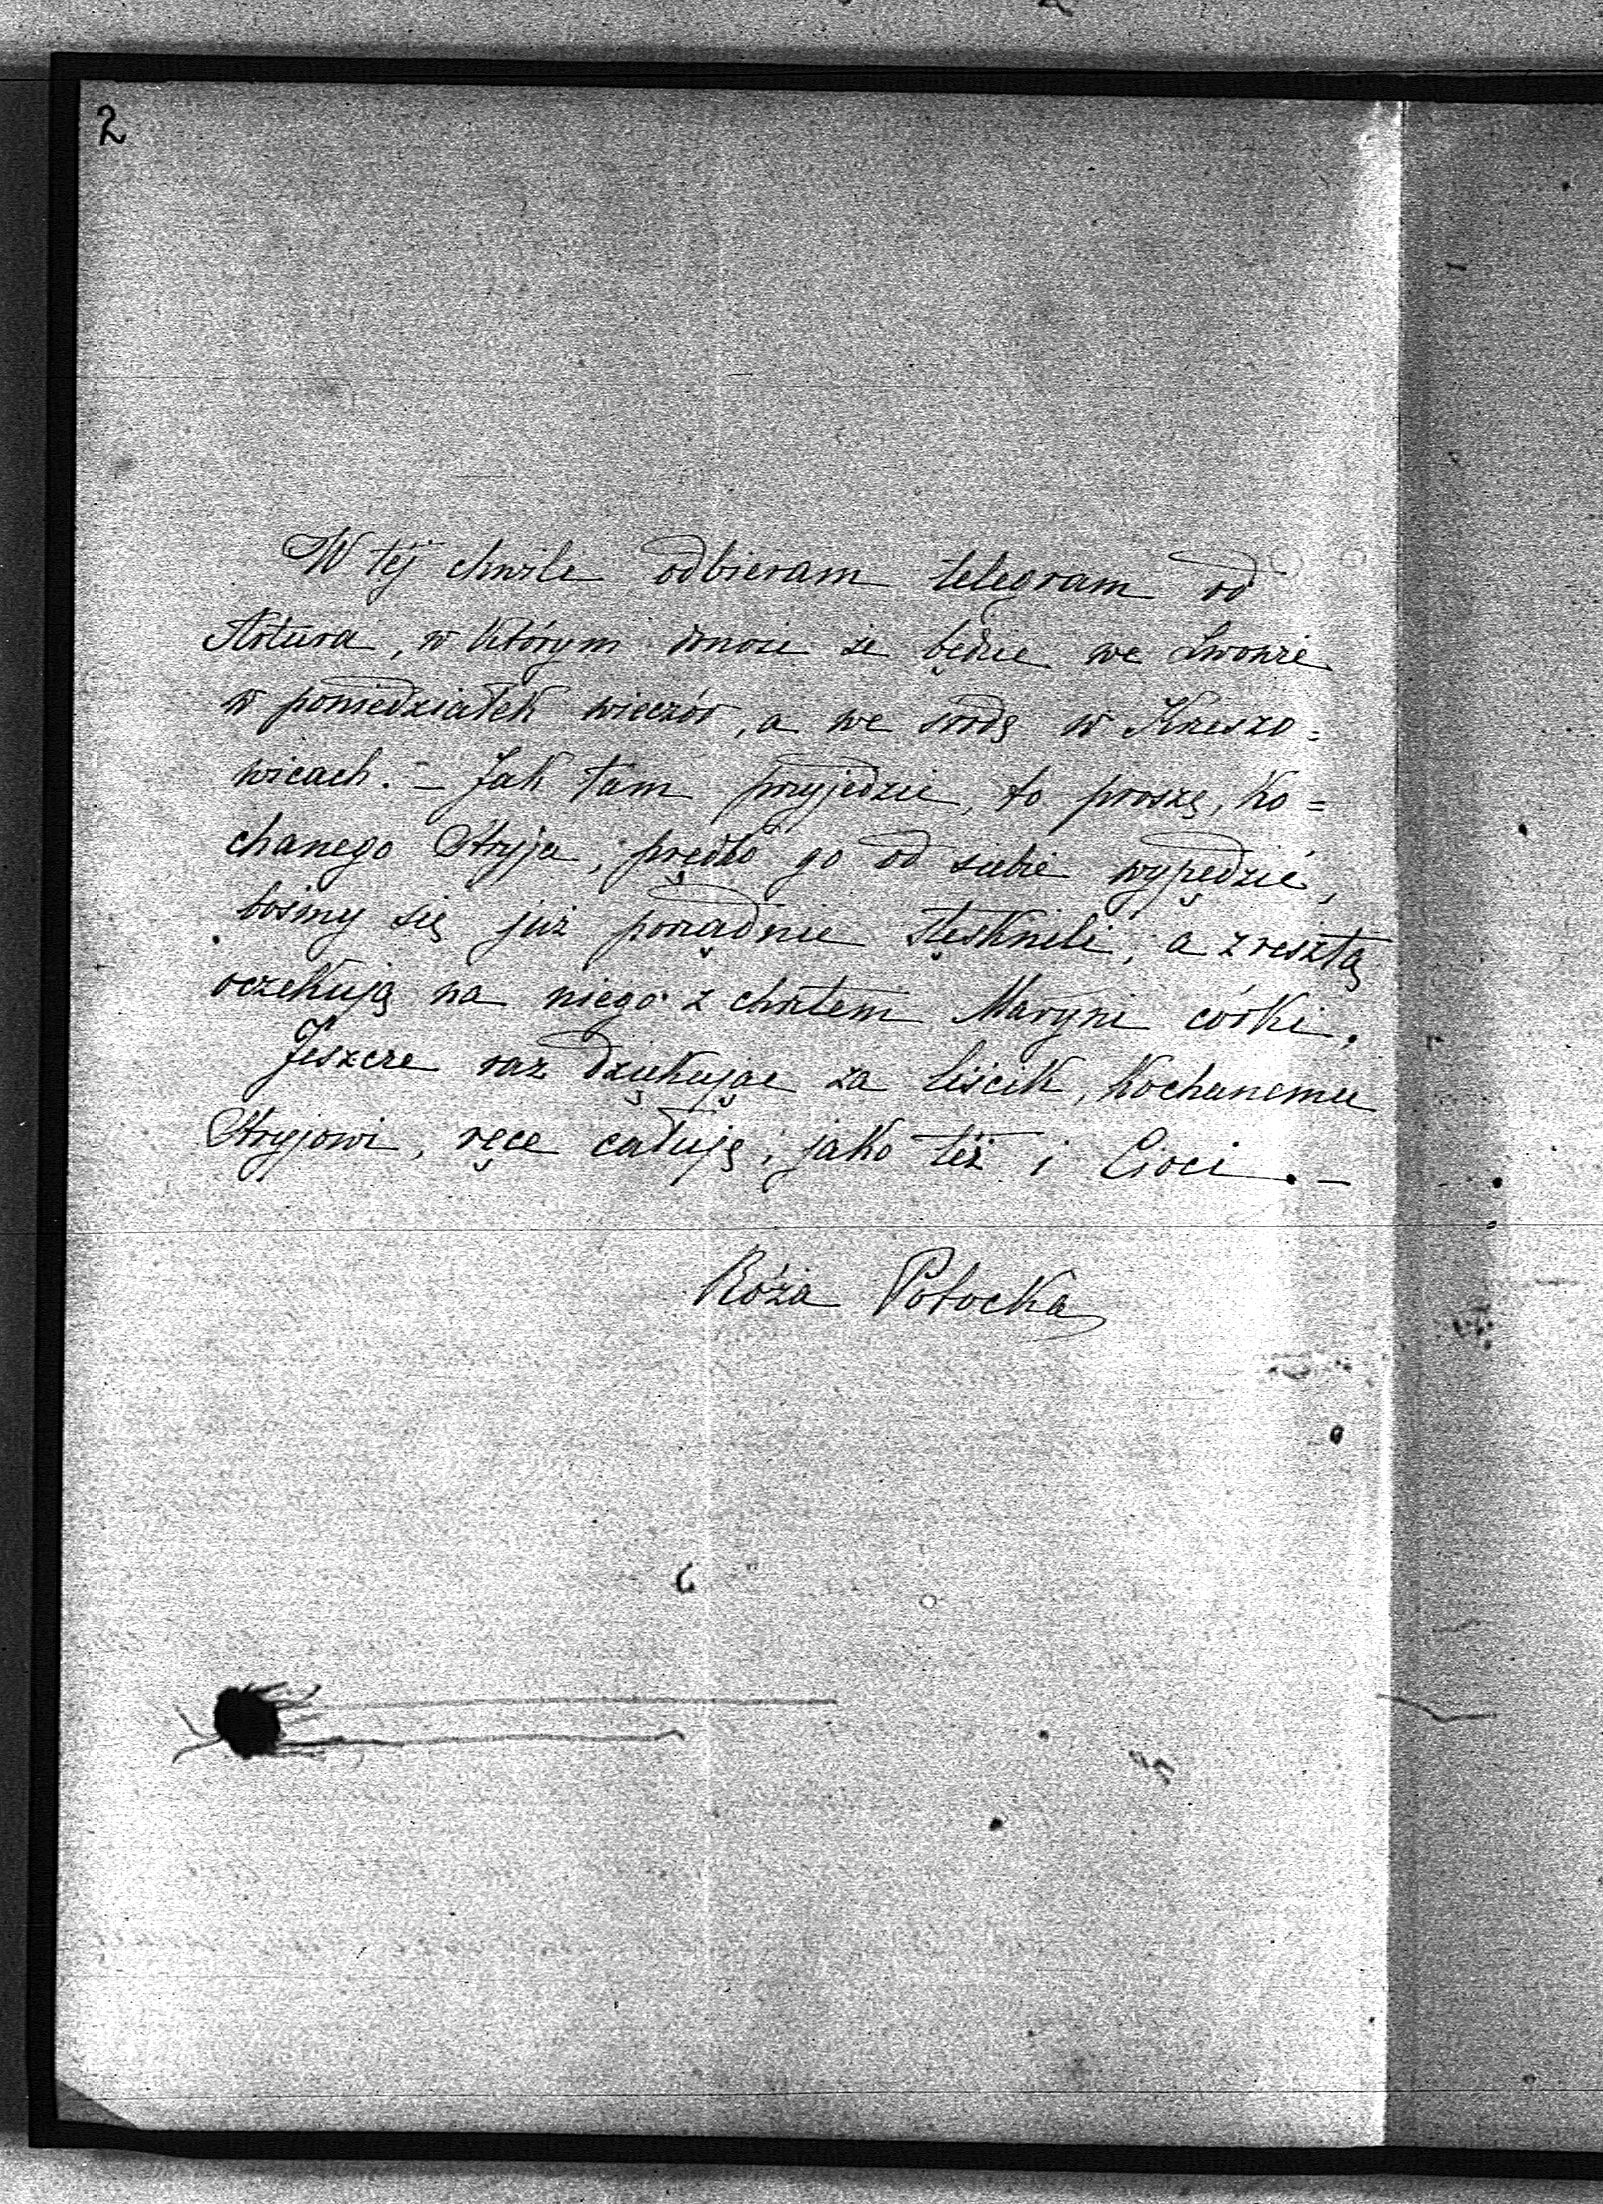 2
W téj chwili odbieram telegram od
Artura, w którym donosi że będzie we Lwowie
w poniedziałek wieczór, a we środę w Krzeszo=
wicach. – Jak tam przyjedzie, to proszę, Ko=
chanego Stryja, prędko go od siebie wypędzić,
bośmy się już porządnie stęsknili, a zresztą
oczekują na niego z chrztem Maryni córki.
Jeszcze raz dziękując za liścik, Kochanemu
Stryjowi, ręce całuję, jako też i Cioci. –
Róża Potocka